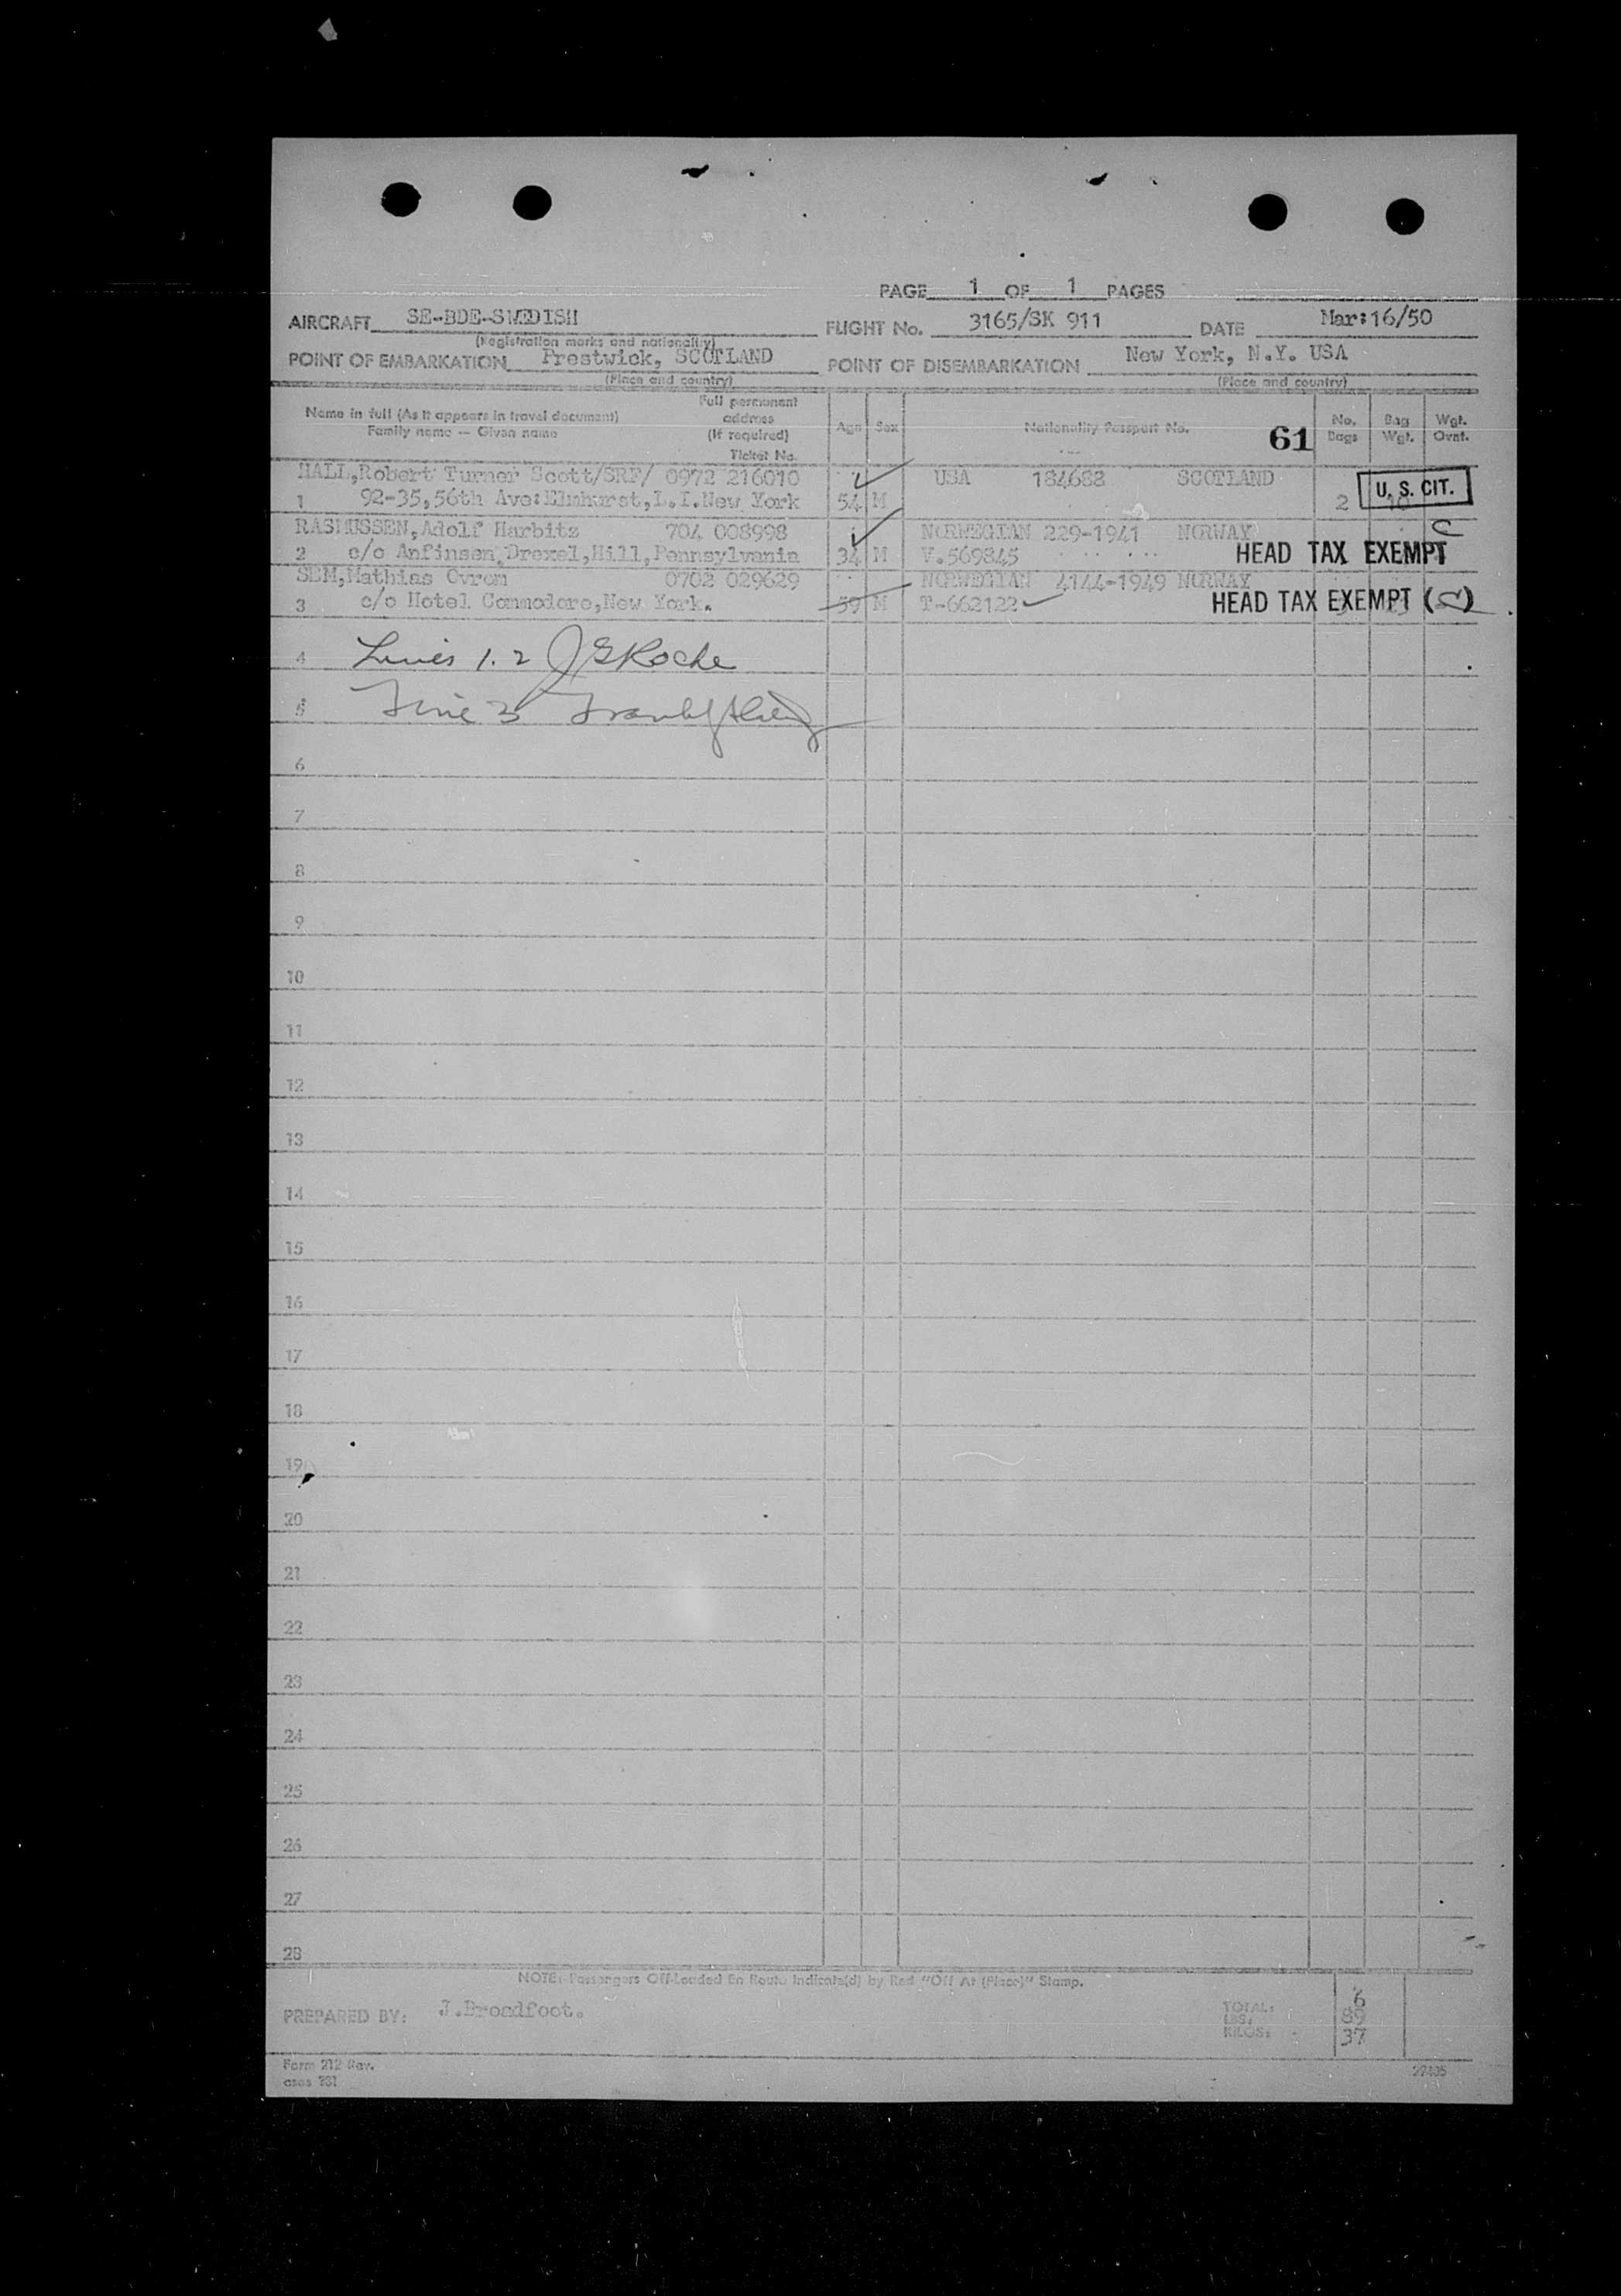 PAGE 1 OF 1 PAGES
AIRCRAFT SE-BDE-SWEDISH FLIGHT No. 3165/SK 911 DATE Mar:16/50
(Registration marks and nationality)
POINT OF EMBARKATION Prestwick, SCOTLAND POINT OF DISEMBARKATION New York, N.Y. USA
(Place and country) (Place and country)
Name in full (As it appears in travel document) Full permanent address (If required) Age Sex Nationality Passport No. 61 No. Bags Bag Wgt. Wgt. Ovnt.
Family name — Given name Ticket No.
HALL,Robert Turner Scott/SRF/ 0972 216010 USA 184688 SCOTLAND
1 92-35,56th Ave:Elmhurst,L.I.New York 54 M 2 U. S. CIT.
RASMUSSEN,Adolf Harbitz 704 008998 NORWEGIAN 229-1941 NORWAY C
2 c/o Anfinsen,Drexel,Hill,Pennsylvania 34 M V.569845 HEAD TAX EXEMPT
SEM,Mathias Ovrom 0702 029629 NORWEGIAN 4144-1949 NORWAY
3 c/o Hotel Commodore,New York. 59 M T-662122 HEAD TAX EXEMPT
4 Lines 1. 2 J G Roche
5 Line 3
6
7
8
9
10
11
12
13
14
15
16
17
18
19
20
21
22
23
24
25
26
27
28
NOTE: Passengers Off-Loaded En Route Indicate(d) by Red "Off At (Place)" Stamp.
PREPARED BY: J.Broadfoot. TOTAL: 6
LBS. 89
KILOS: 37
Form 212 Rev.
27435